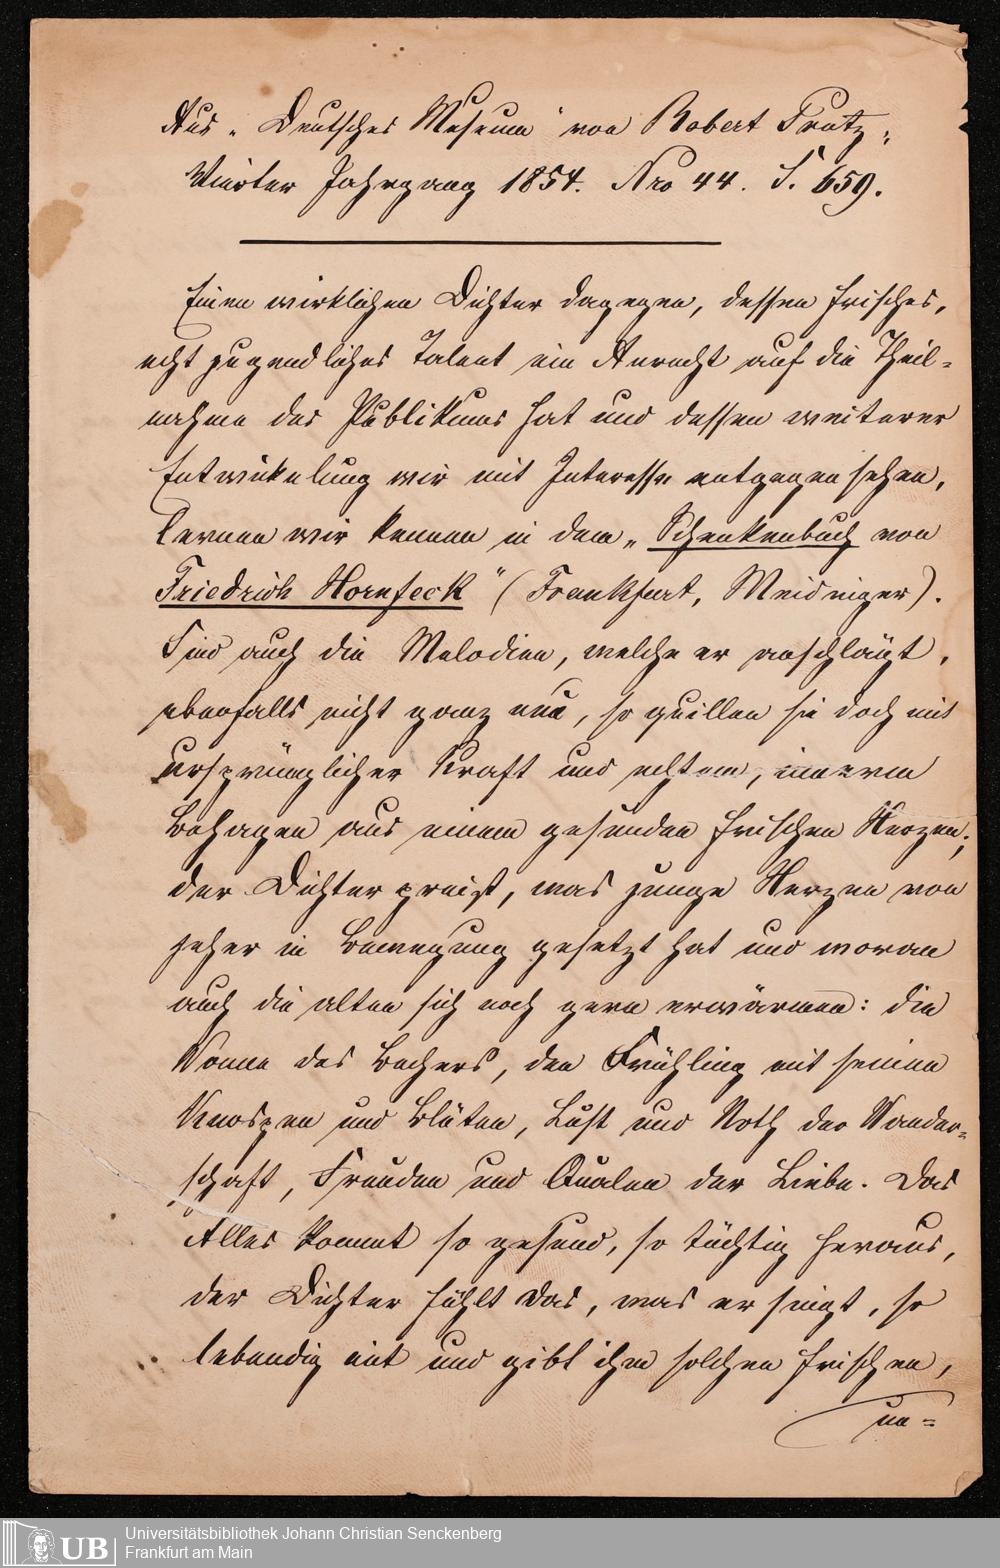 Aus „Deutsches Museum“ von Robert Prutz,
Vierter Jahrgang 1854. Nro 44. S. 659.
Einen wirklichen Dichter dagegen, dessen frisches,
echt jugendliches Talent ein Anrecht auf die Theil-
nahme des Publikums hat und dessen weiterer
Entwickelung wir mit Interesse entgegen sehen,
lernen wir kennen in dem „Schenkenbuch von
Friedrich Hornfeck“ (Frankfurt, Meidinger).
Sind auch die Melodien, welche er anschlägt,
ebenfalls nicht ganz neu, so quillen sie doch mit
ursprünglicher Kraft und echtem, innerem
Behagen aus einem gesunden frischen Herzen;
der Dichter preist, was junge Herzen von
jeher in Bewegung gesetzt hat und woran
auch die alten sich noch gern erwärmen: die
Wonne des Bechers, den Frühling mit seinen
Knospen und Blüten, Lust und Noth der Wander-
schaft, Freuden und Qualen der Liebe. Das
Alles kommt so gesund, so tüchtig heraus,
der Dichter fühlt das, was er singt, so
lebendig mit und gibt ihm solchen frischen,
un-
UB
Universitätsbibliothek Johann Christian Senckenberg
Frankfurt am Main